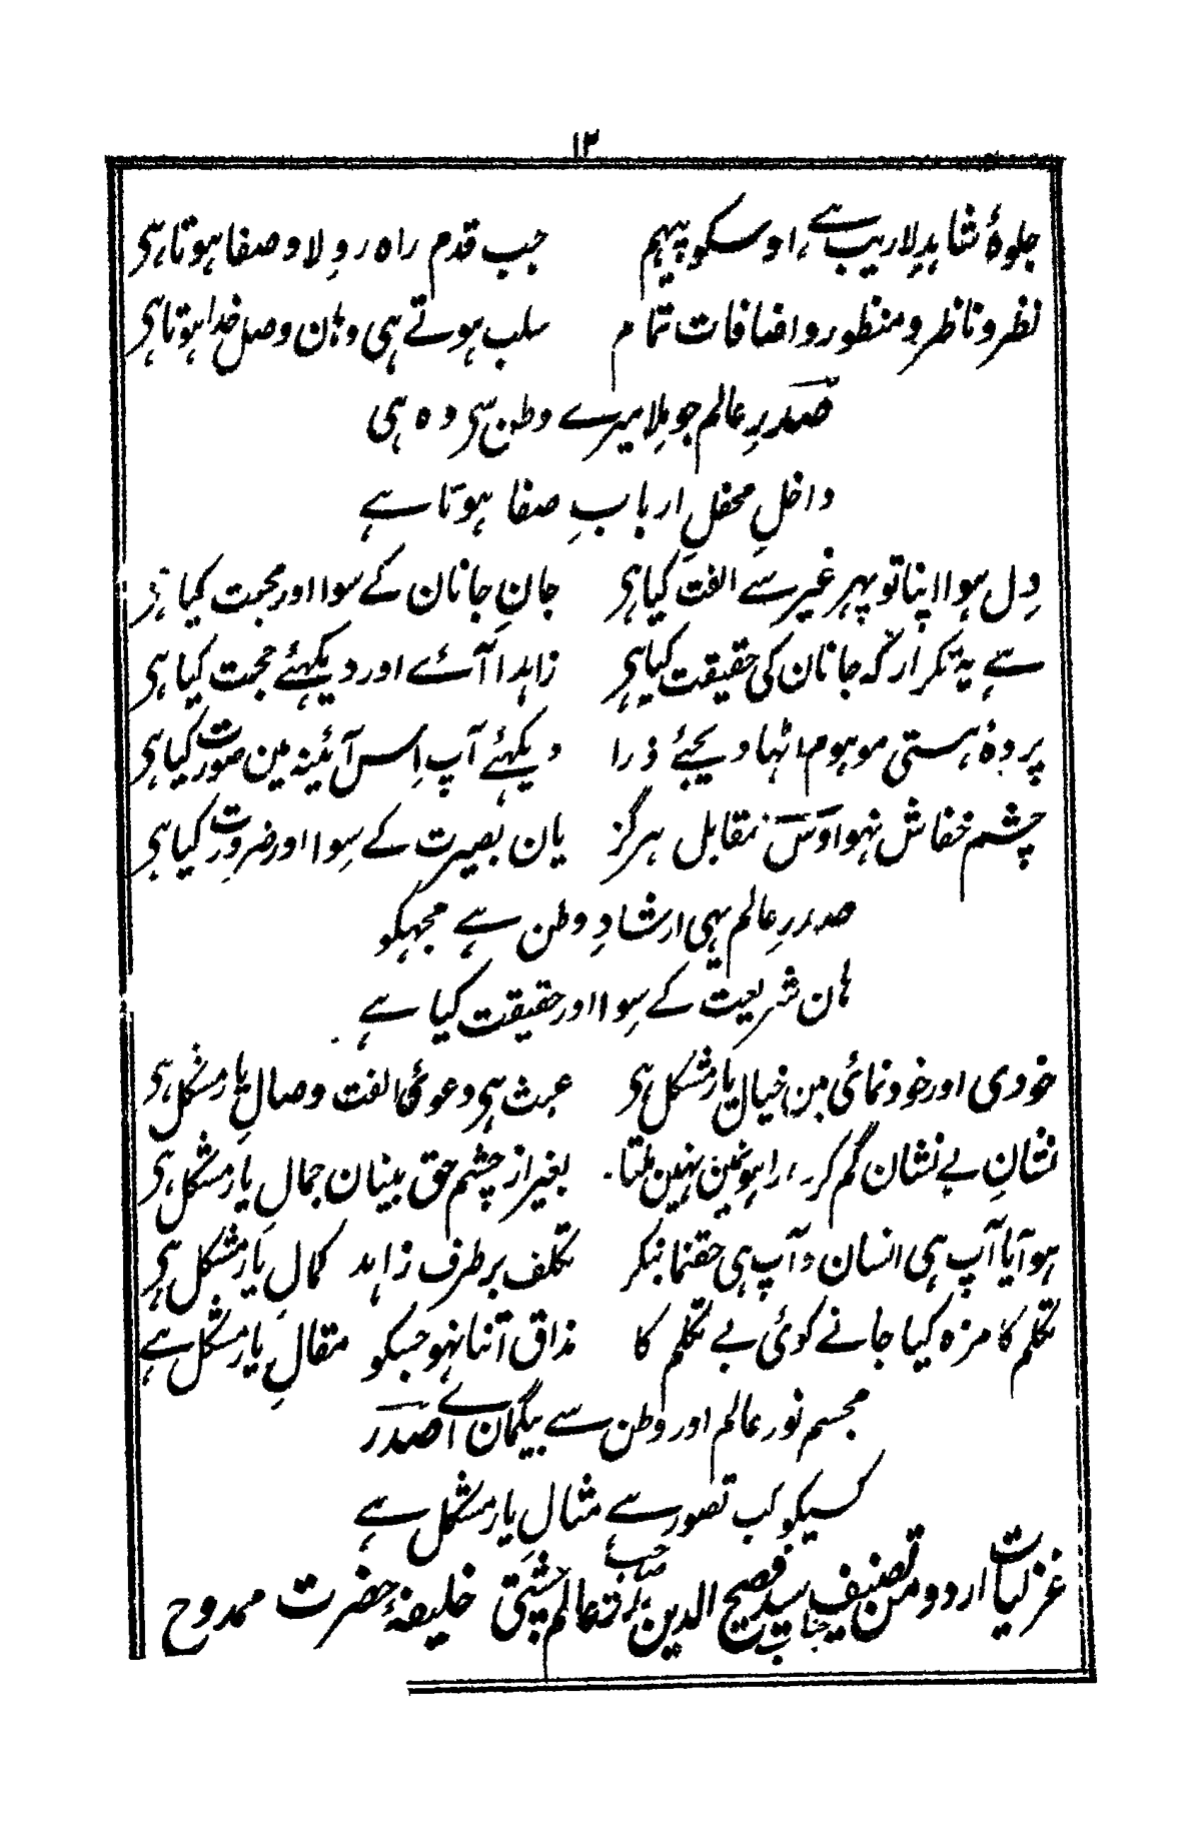 ۱۳
جلوۂ شاہدِ لاریب ہے، اوسکو پیہم جب قدم راہ روِ لا و صفا ہوتا ہی
نظر و ناظر و منظور و اضافات تمام سلب ہوتے ہی وہان وصل خدا ہوتا ہی
صدرِ عالم جو ملا میرے وطن سی وہ ہی
داخلِ محفلِ اربابِ صفا ہوتا ہے
دِل ہوا اپنا تو پہر غیر سے الفت کیا ہی جانِ جانان کے سوا اور محبت کیا ہی
ہے یہ تکرار کہ جانان کی حقیقت کیا ہی زاہد آئے اور دیکہئے حجت کیا ہی
پردۂ ہستی موہوم اٹہا دیجئے ذرا دیکہئے آپ اِس آئینہ مین صورت کیا ہی
چشم خفاش نہو اوس مقابل ہرگز یان بصیرت کے سِوا اور ضرورت کیا ہی
صدرِ عالم یہی ارشادِ وطن ہے مجہکو
ہان شریعت کے سِوا اور حقیقت کیا ہے
خودی اور خودنمائی مین خیالِ یار مشکل ہی عبث ہی دعوئ الفت وصالِ یار مشکل ہی
نشانِ بے نشان گم کردہ راہونمین نہین ملتا بغیر از چشم حق بینان جمالِ یار مشکل ہی
ہو آیا آپ ہی انسان و آپ ہی حقنما بنکر تکلف برطرف زاہد کمالِ یار مشکل ہی
تکلم کا مزہ کیا جانے کوئی بے تکلم کا مذاق اتنا نہو جسکو مقالِ یار مشکل ہے
مجسم نور عالم اور وطن سے بیگمان اے صدر
کسیکو کب تصور سے مثالِ یار مشکل ہے
غزلیات اردو من تصنیف جناب سید فصیح الدین صاحب عالم چشتی خلیفۂ حضرت ممدوح